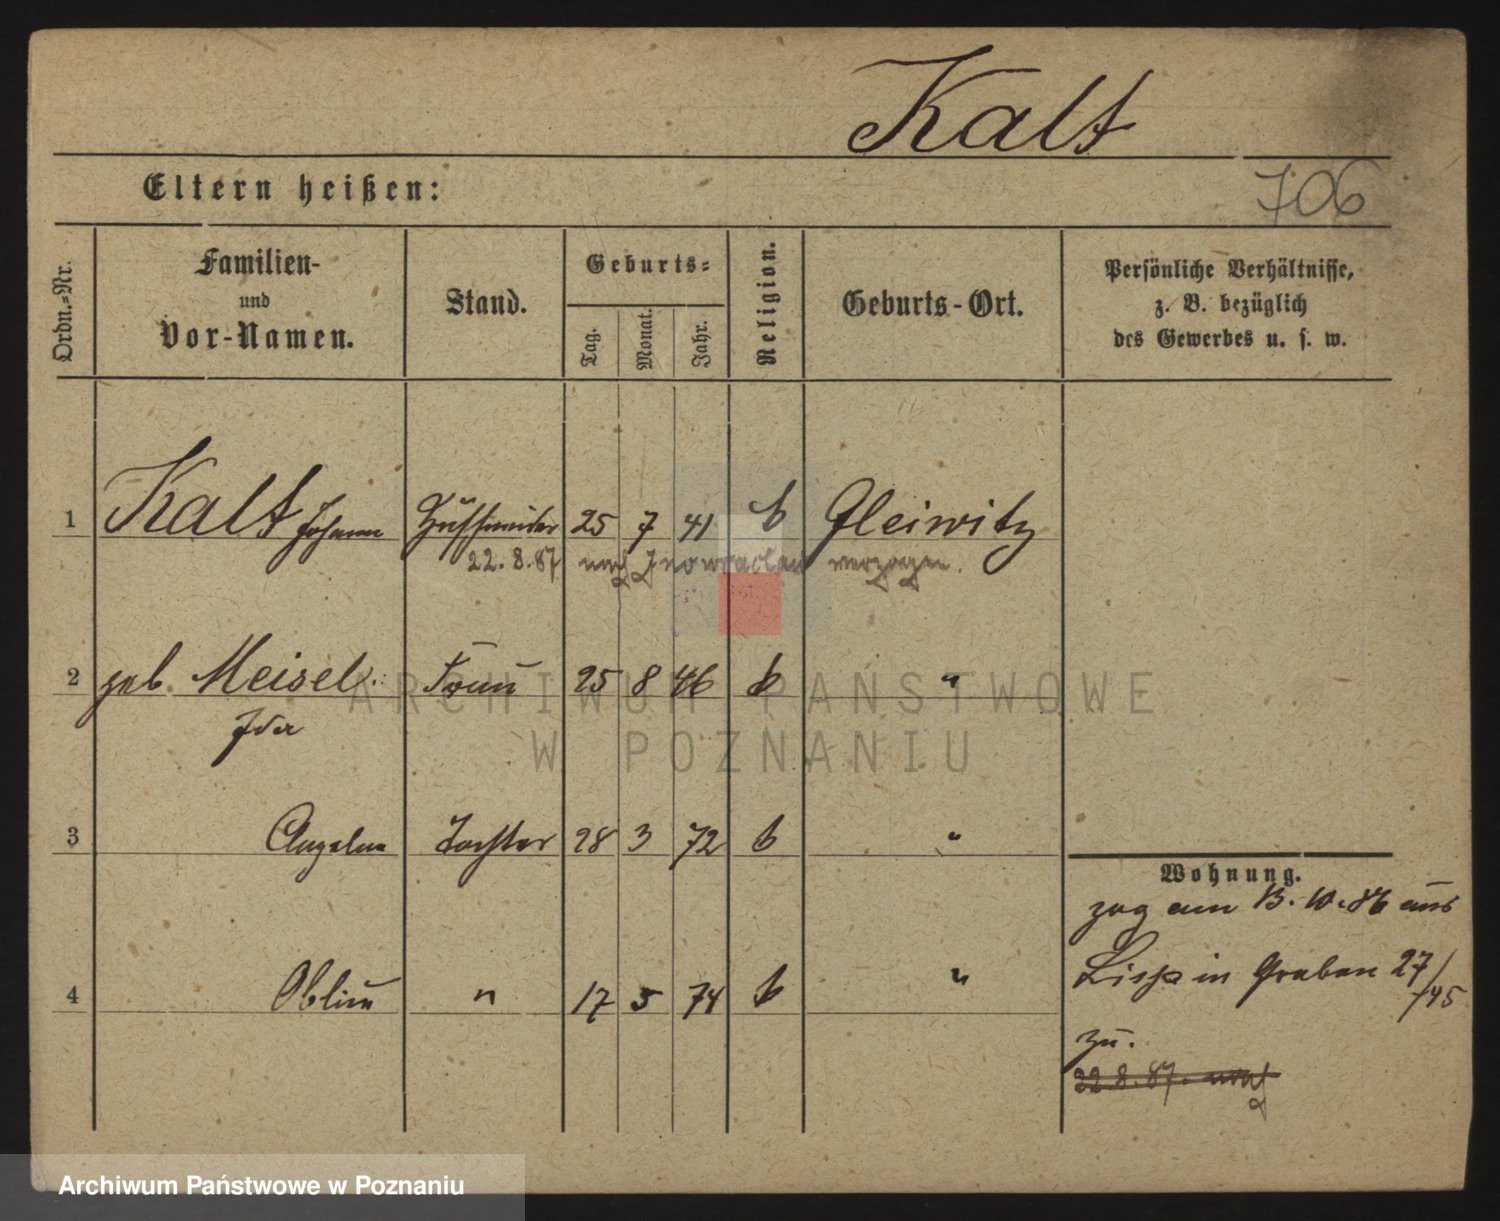 Kalt
Eltern heißen:
706
Ordn.=Nr.
Familien-
und
Vor-Namen.
Stand.
Geburts=
Tag.
Monat.
Jahr.
Religion.
Geburts-Ort.
Persönliche Verhältnisse,
z. B. bezüglich
des Gewerbes u. s. w.
1 Kalt Johann 25 7 41 k Gleiwitz
22.8.87 nach Inowraclaw verzogen.
2 geb. Meisel Frau 25 8 46 k "
Ida
3 Tochter 28 3 72 k "
4 " 17 5 74 k "
Wohnung.
zog am 13.10.86 aus
in Graben 27/45
zu.
22.8.87. nach
ARCHIWUM PAŃSTWOWE
W POZNANIU
Archiwum Państwowe w Poznaniu